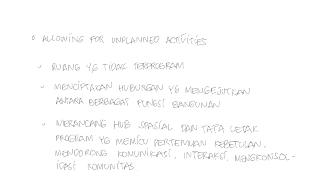 ALLOWING FOR UNPLANNED ACTIVITIES
RUANG YG TIDAK TERPROGRAM
MENCIPTAKAN HUBUNGAN YG MENGEJUTKAN
ANTARA BERBAGAI FUNGSI BANGUNAN
MERANCANG HUB. SPASIAL DAN TATA LETAK
PROGRAM YG MEMICU PERTEMUAN KEBETULAN.
MENDORONG KOMUNIKASI, INTERAKSI, MENGKONSOL-
IDASI KOMUNITAS